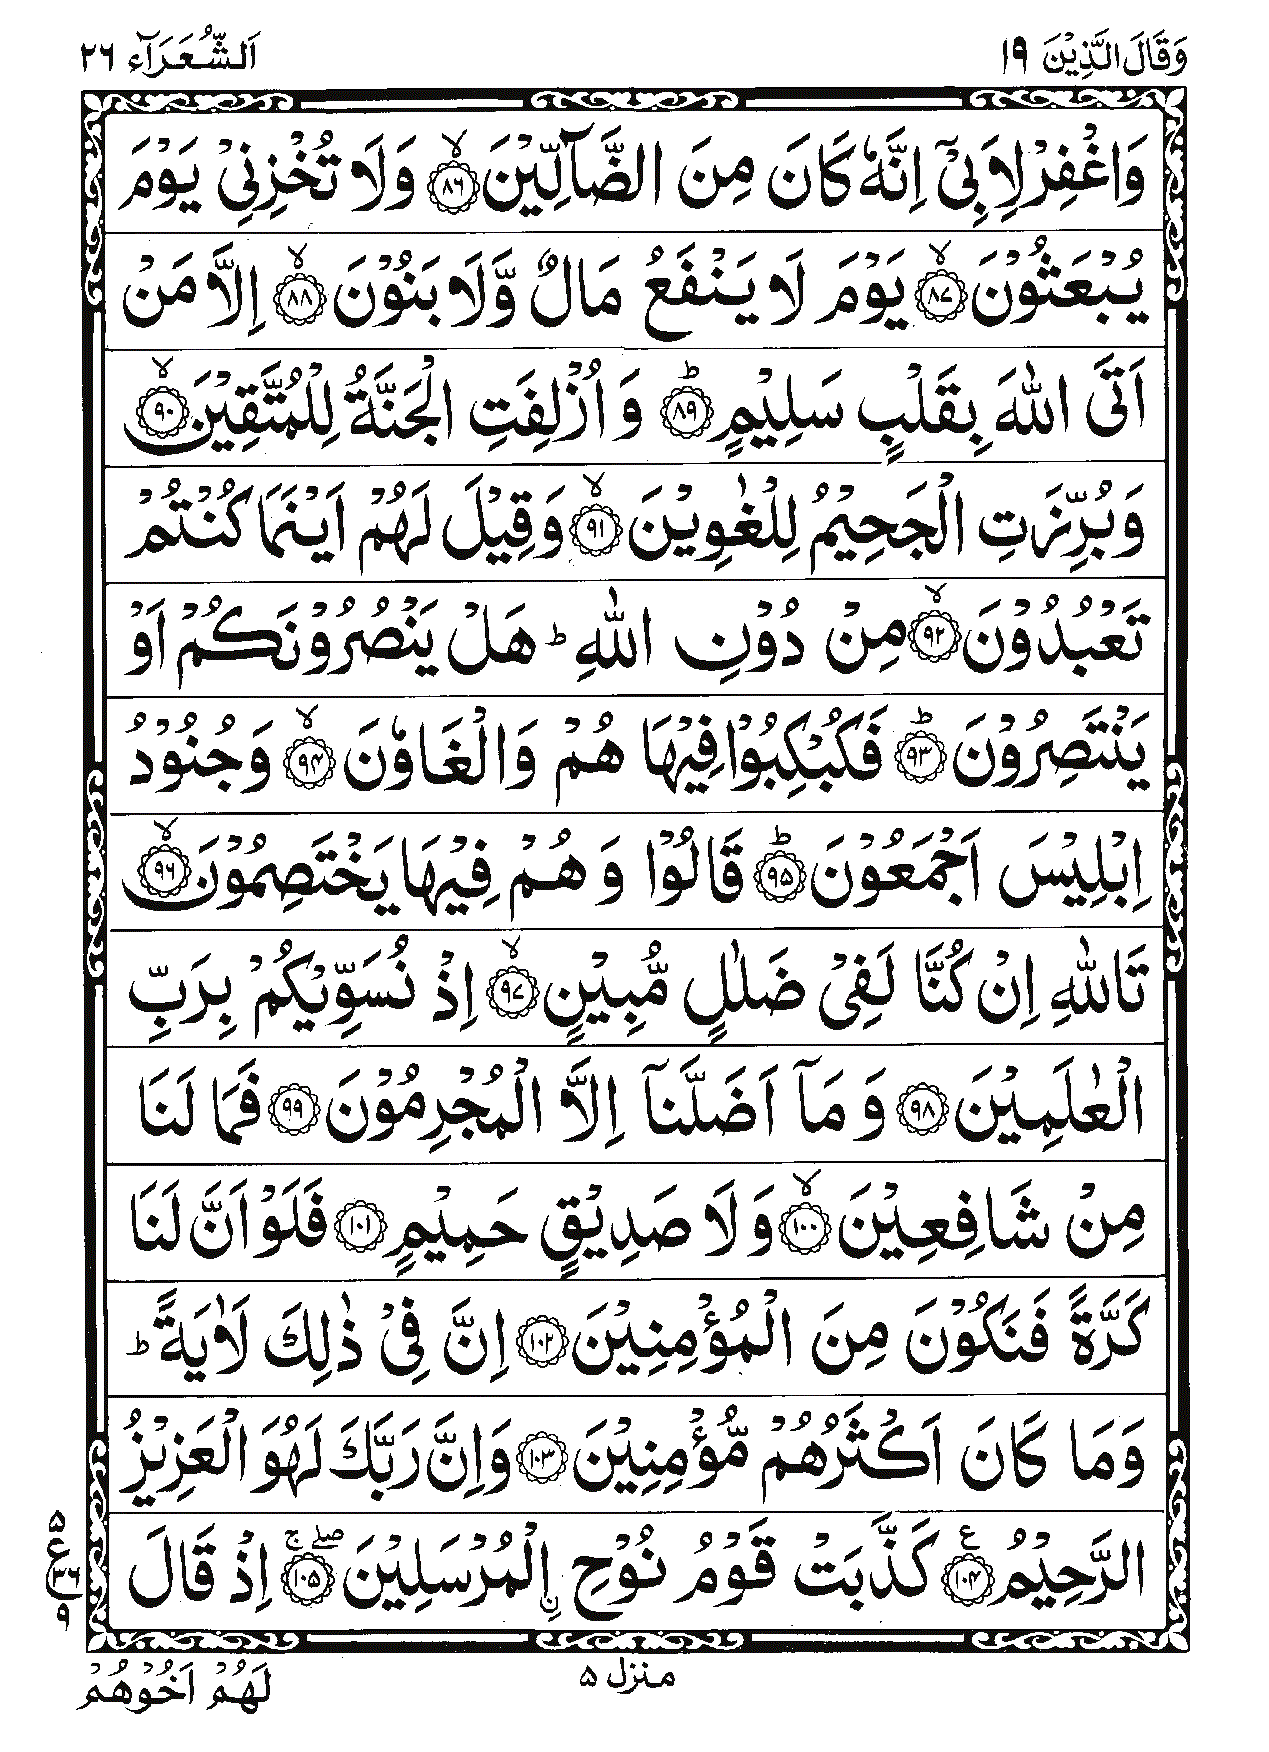 وَقَالَ الَّذِيْنَ ١٩
اَلشُّعَرَآء ٢٦
وَاغْفِرْ لِاَبِىْٓ اِنَّهٗ كَانَ مِنَ الضَّآلِّيْنَ ۙ﴿۸۶﴾ وَلَا تُخْزِنِىْ يَوْمَ
يُبْعَثُوْنَ ۙ﴿۸۷﴾ يَوْمَ لَا يَنْفَعُ مَالٌ وَّلَا بَنُوْنَ ۙ﴿۸۸﴾ اِلَّا مَنْ
اَتَى اللّٰهَ بِقَلْبٍ سَلِيْمٍ ؕ﴿۸۹﴾ وَ اُزْلِفَتِ الْجَنَّةُ لِلْمُتَّقِيْنَ ۙ﴿۹۰﴾
وَبُرِّزَتِ الْجَحِيْمُ لِلْغٰوِيْنَ ۙ﴿۹۱﴾ وَقِيْلَ لَهُمْ اَيْنَمَا كُنْتُمْ
تَعْبُدُوْنَ ۙ﴿۹۲﴾ مِنْ دُوْنِ اللّٰهِ ؕ هَلْ يَنْصُرُوْنَكُمْ اَوْ
يَنْتَصِرُوْنَ ؕ﴿۹۳﴾ فَكُبْكِبُوْا فِيْهَا هُمْ وَالْغَاوٗنَ ۙ﴿۹۴﴾ وَجُنُوْدُ
اِبْلِيْسَ اَجْمَعُوْنَ ؕ﴿۹۵﴾ قَالُوْا وَ هُمْ فِيْهَا يَخْتَصِمُوْنَ ۙ﴿۹۶﴾
تَاللّٰهِ اِنْ كُنَّا لَفِىْ ضَلٰلٍ مُّبِيْنٍ ۙ﴿۹۷﴾ اِذْ نُسَوِّيْكُمْ بِرَبِّ
الْعٰلَمِيْنَ ﴿۹۸﴾ وَ مَآ اَضَلَّنَآ اِلَّا الْمُجْرِمُوْنَ ﴿۹۹﴾ فَمَا لَنَا
مِنْ شَافِعِيْنَ ۙ﴿۱۰۰﴾ وَلَا صَدِيْقٍ حَمِيْمٍ ﴿۱۰۱﴾ فَلَوْ اَنَّ لَنَا
كَرَّةً فَنَكُوْنَ مِنَ الْمُؤْمِنِيْنَ ﴿۱۰۲﴾ اِنَّ فِىْ ذٰلِكَ لَاٰيَةً ؕ
وَمَا كَانَ اَكْثَرُهُمْ مُّؤْمِنِيْنَ ﴿۱۰۳﴾ وَاِنَّ رَبَّكَ لَهُوَ الْعَزِيْزُ
الرَّحِيْمُ ع﴿۱۰۴﴾ كَذَّبَتْ قَوْمُ نُوْحِ ِ۟الْمُرْسَلِيْنَ ۖۚ﴿۱۰۵﴾ اِذْ قَالَ
۵
ع
٣٦
۹
منزل ۵
لَهُمْ اَخُوْهُمْ